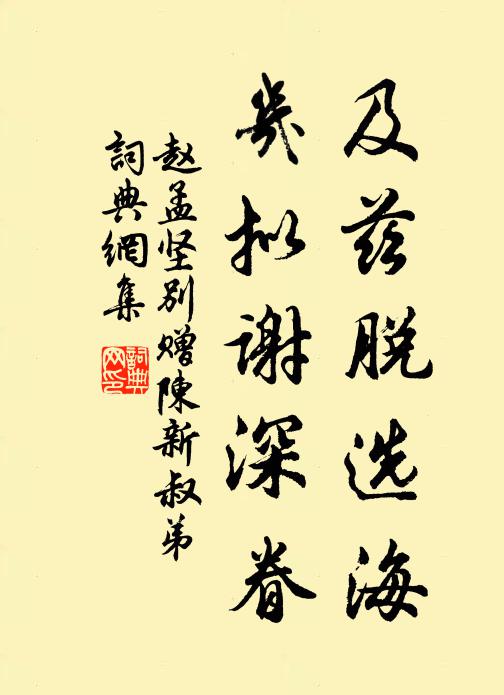 及兹脱选海
几拟谢深眷
赵孟坚别赠陳新叔弟
詞典網集
詞典网印